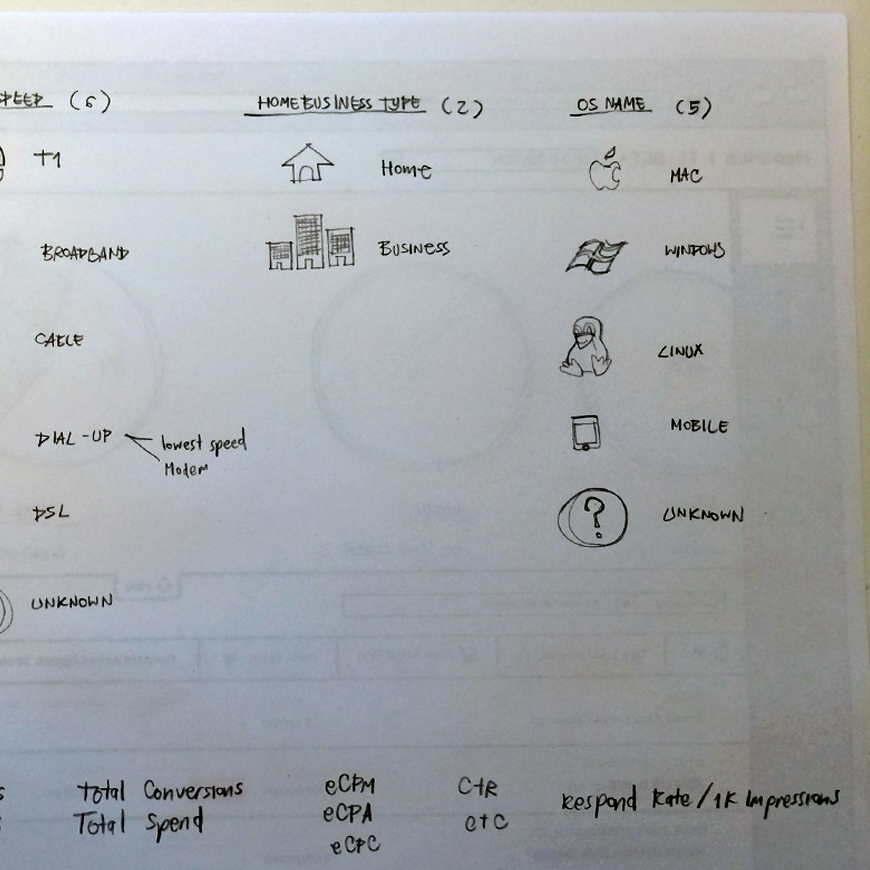 SPEED (6)
T1
BROADBAND
CABLE
DIAL-UP
lowest speed
Modem
DSL
UNKNOWN
HOMEBUSINESS TYPE (2)
Home
BUSINESS
OS NAME (5)
MAC
WINDOWS
LINUX
MOBILE
?
UNKNOWN
Total Conversions
Total Spend
eCPM
eCPA
eCPC
CTR
etc
Respond Rate/1K Impressions